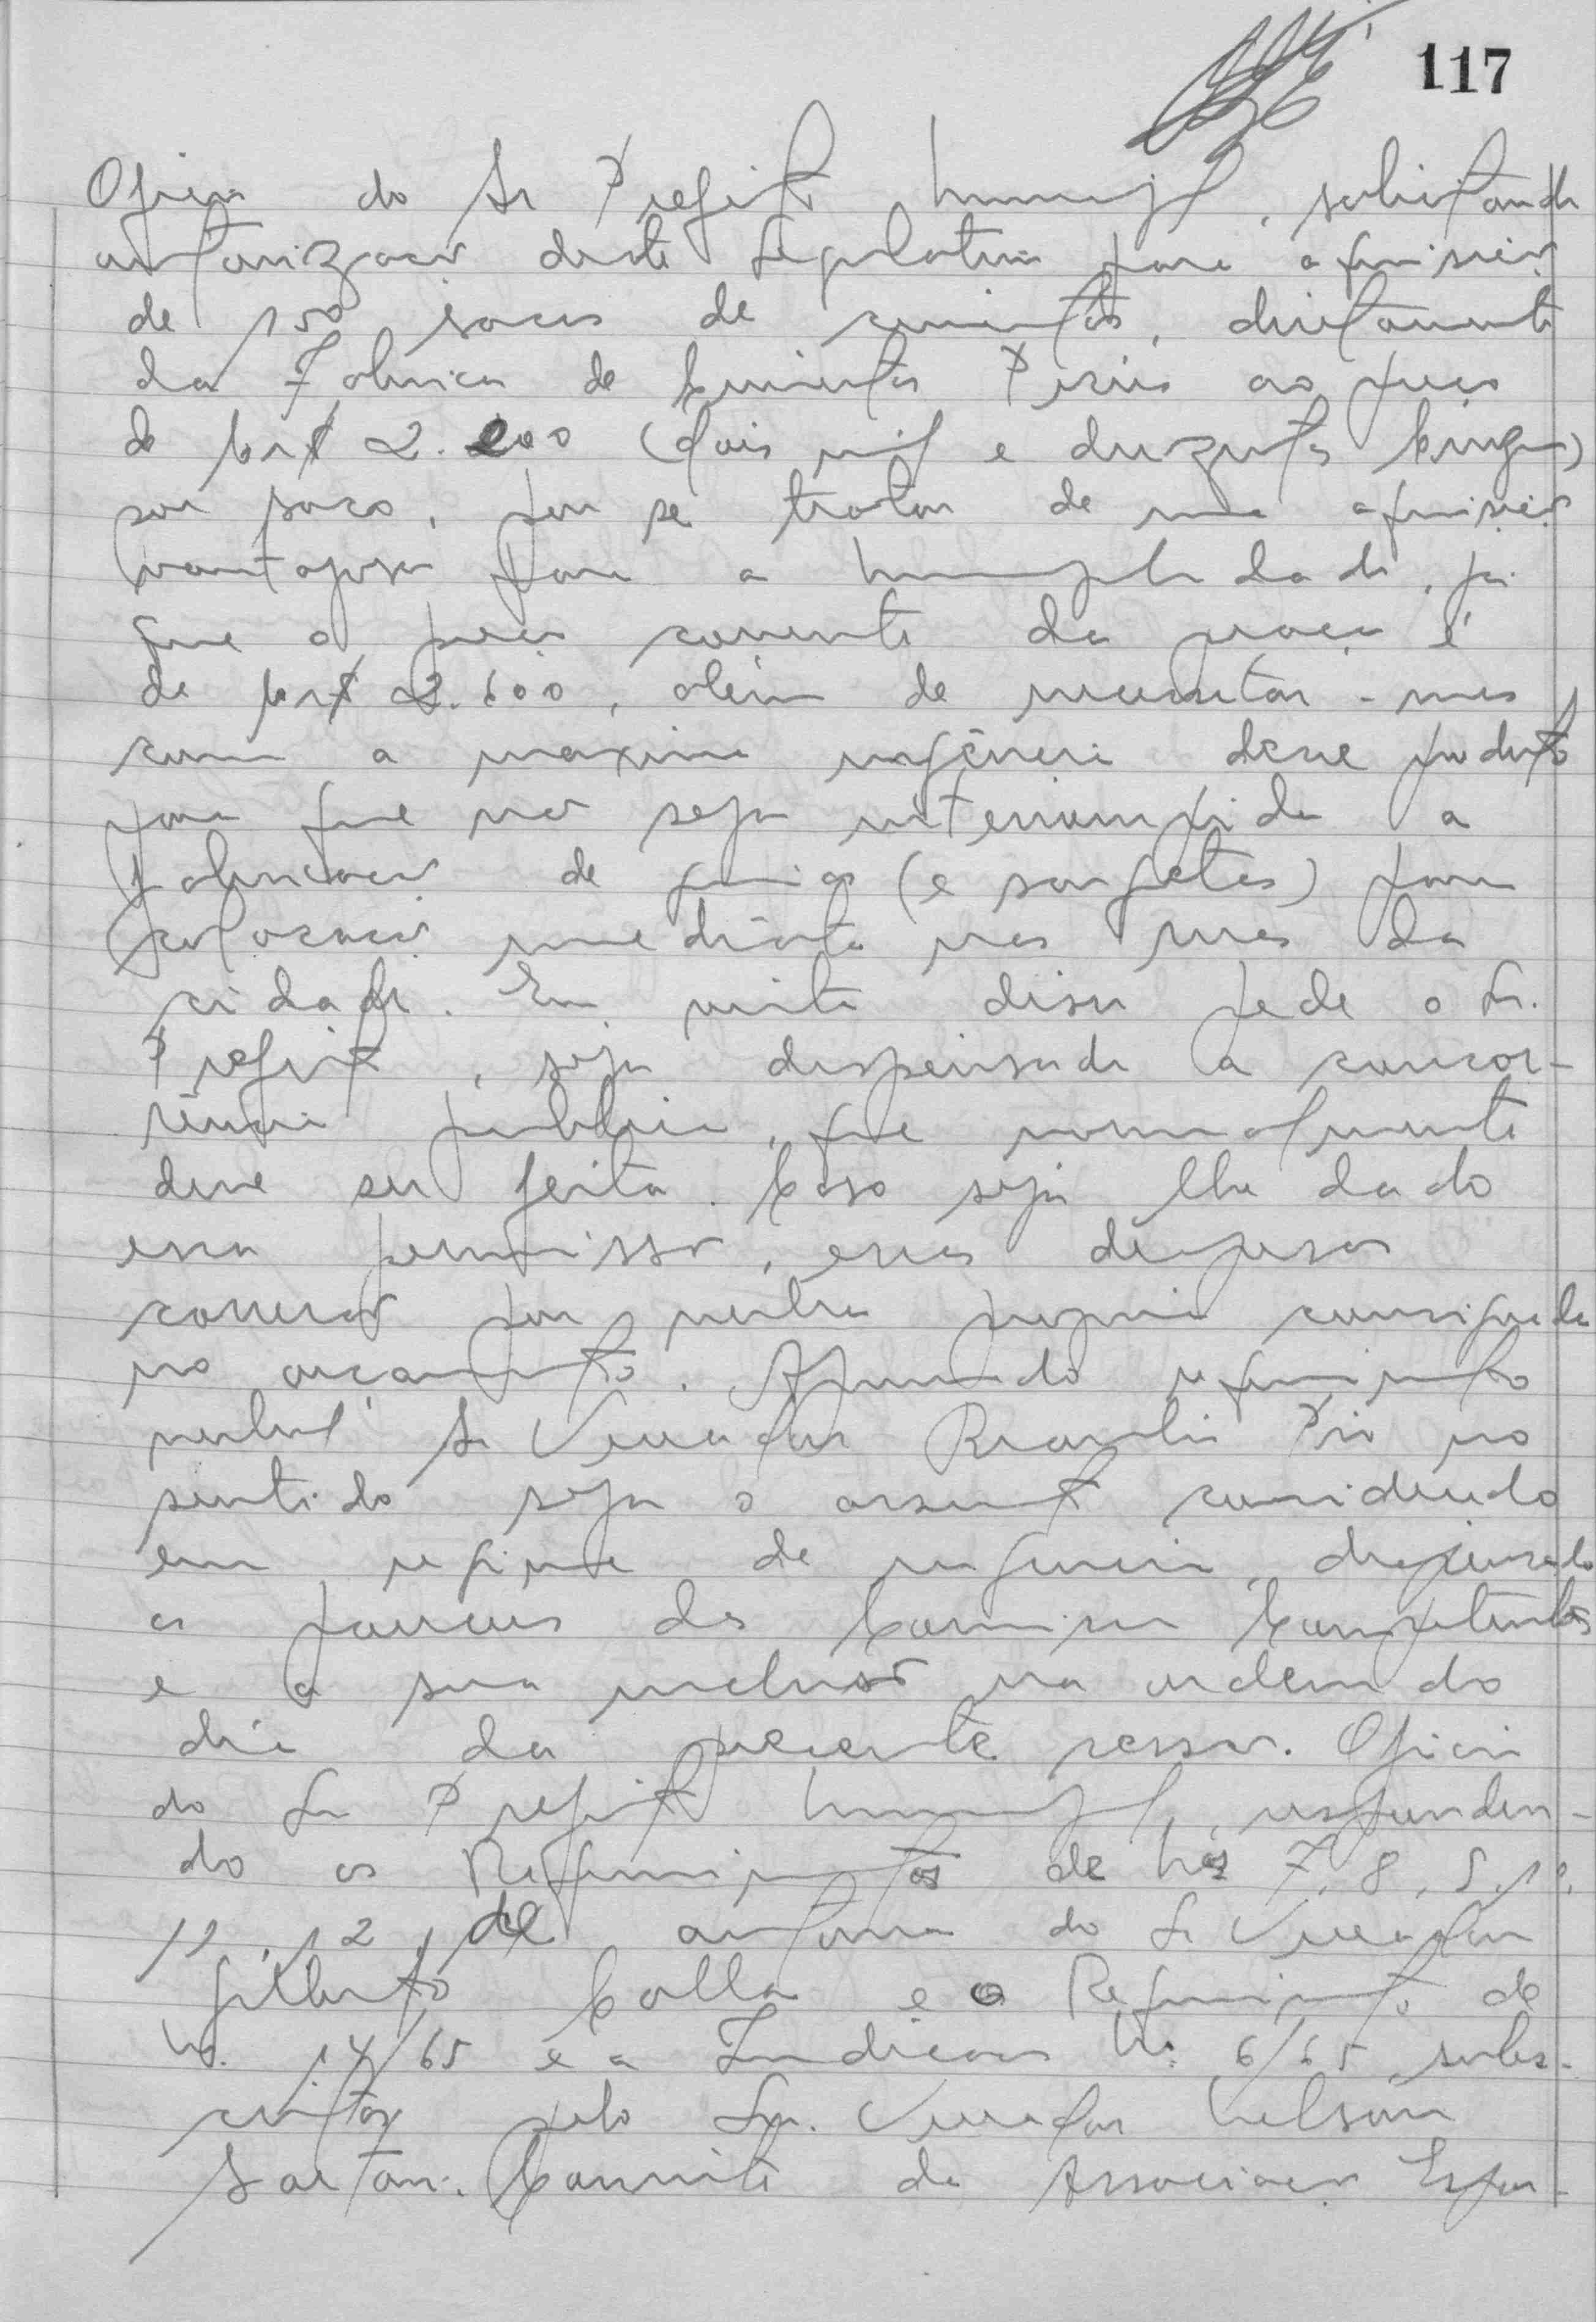 117
Oficio do Sr Prefeito Municipal, solicitando
autorização deste Legislativo para aquisição
de 150 sacos de cimentos, diretamente
da Fabrica de Cimentos Perús ao preço
de Cr$ 2.200 (dois mil e duzentos cruzeiros)
por saco, por se tratar de uma aquisição
vantajosa para a municipalidade, já
que o preço corrente da praça é
de Cr$ 2.600, além de necessitar-mos
com a maxima urgência desse produto
para que não seja interrompida a
fabricação de guias (e sargetas) para
colocação imediata nas ruas da
cidade. Em vista disso pede o Sr.
Prefeito, seja dispensada a concor-
rência publica, que normalmente
deve ser feita. Caso seja lhe dado
essa permissão, essas despesas
correrão por verba propria consignada
no orçamento. Aprovado requerimento
verbal Sr Vereador Pió no
sentido seja o assunto considerado
em regime de urgencia, dispensado
os pareceres das Comissões Competentes
e a sua inclusão na ordem do
dia da presente sessão. Oficio
do Sr Prefeito Municipal, responden-
do os Requerimentos de Nos 7, 8, 9, 10,
11, 12, de autoria do Sr Vereador
Gilberto Colla e o Requerimento de
No. 14/65 e a Indicação No: 6/65 subs-
critas pelo Sr. Vereador Nelson
Sartori. Convite da Associação Espor-